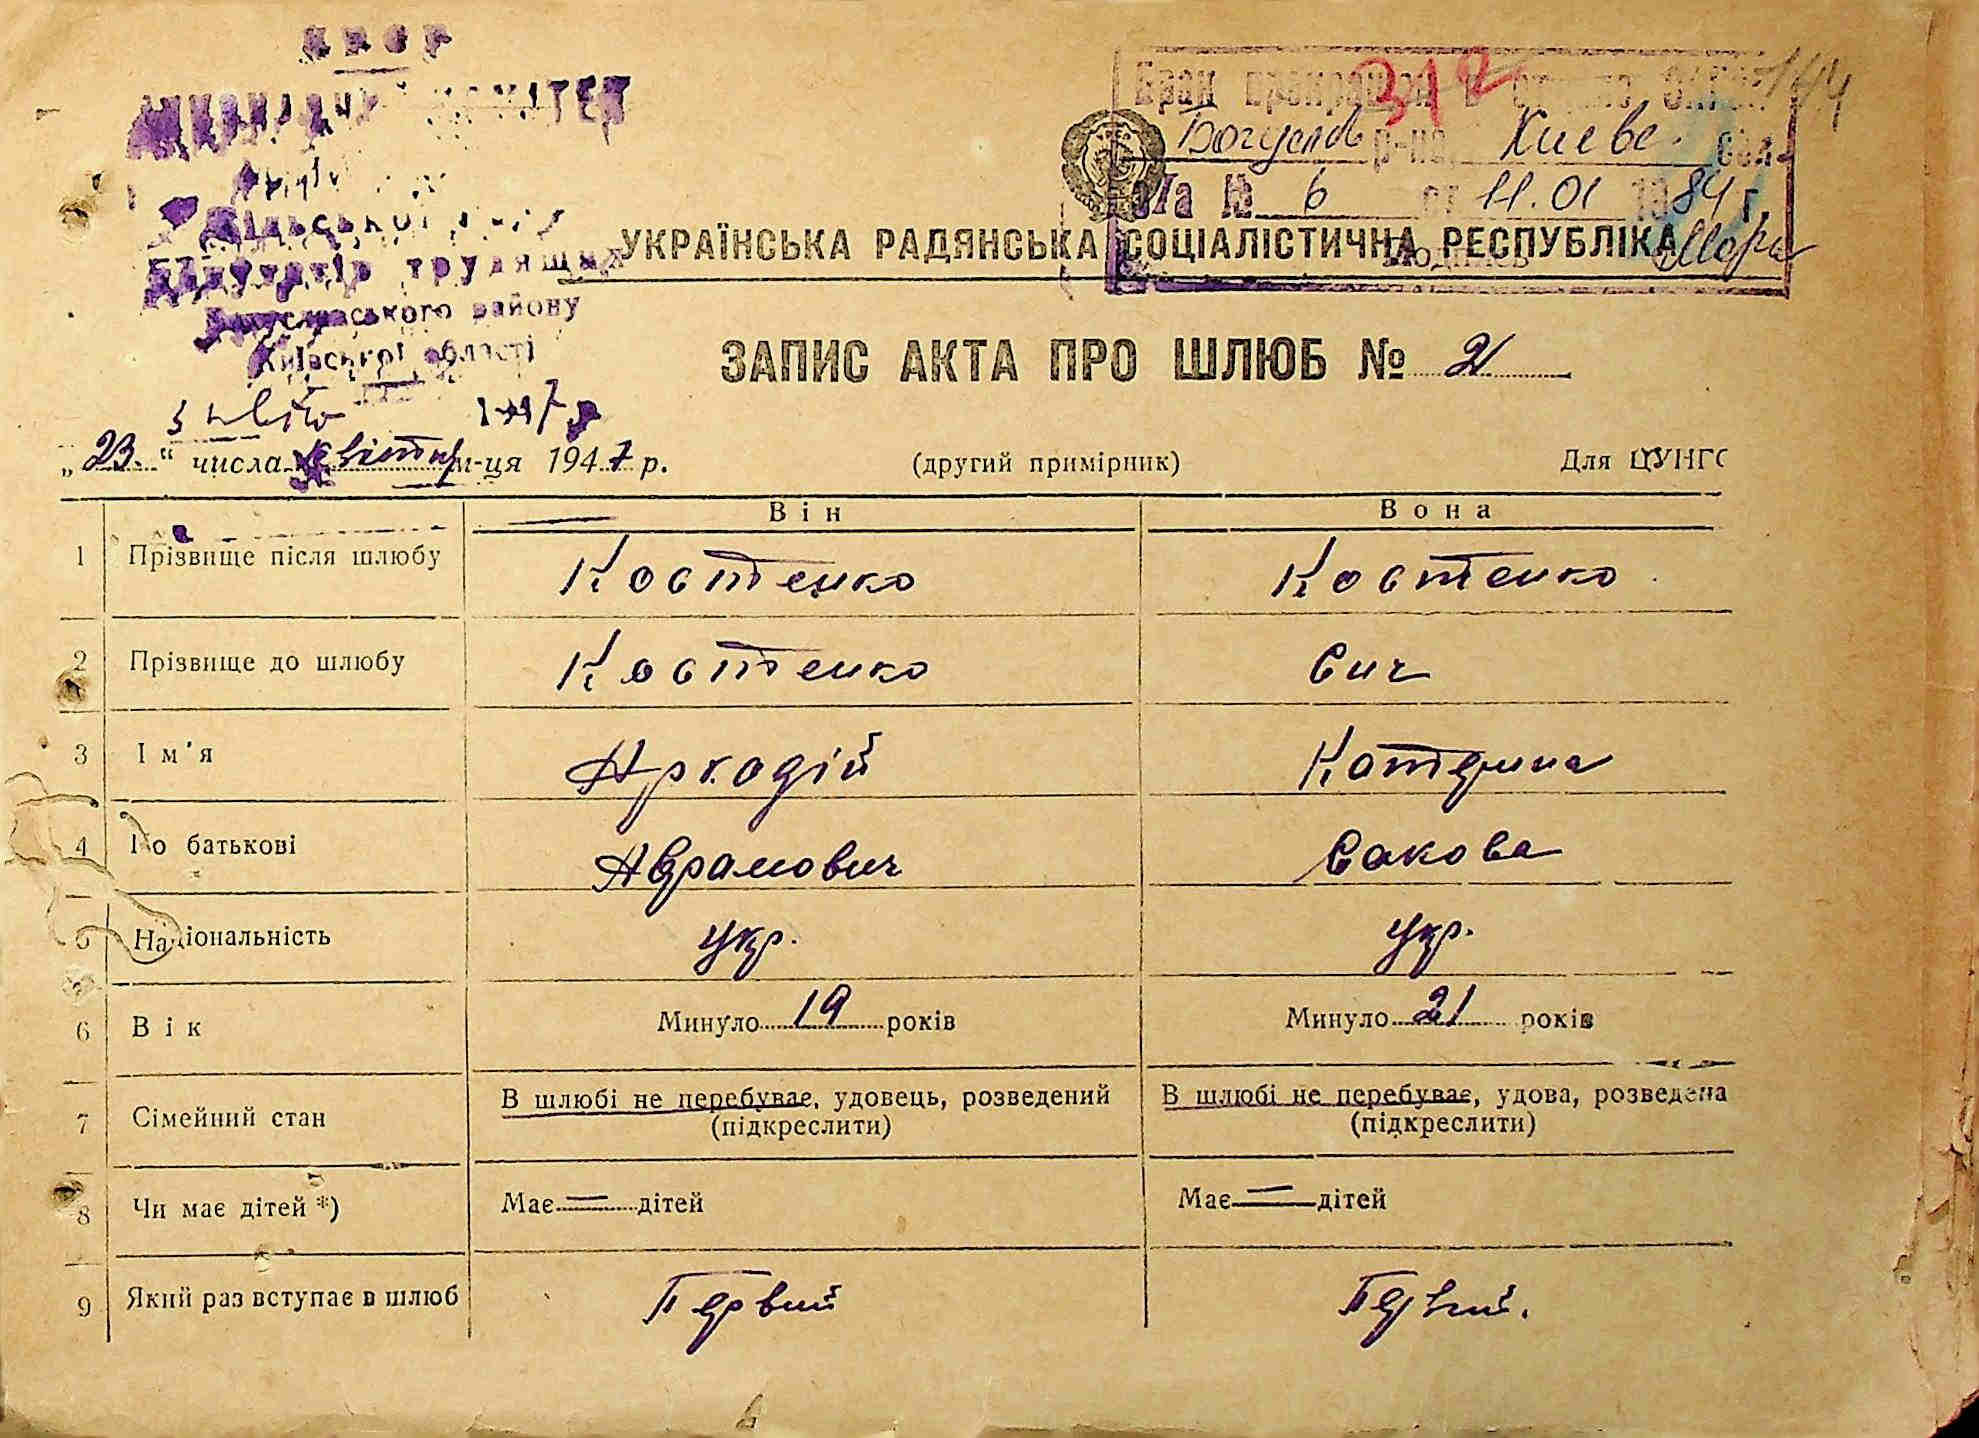 УРСР
ВИКОНАВЧИЙ КОМІТЕТ
Сільської Ради
Депутатів трудящих
Богуславського району
Київської області
1947 р
Брак прекращен в органе ЗАГСа
312
Богуслав р-на, Киеве. обл.
а/з № 6 от 11.01 1984 г.
Подпись
УКРАЇНСЬКА РАДЯНСЬКА СОЦІАЛІСТИЧНА РЕСПУБЛІКА
ЗАПИС АКТА ПРО ШЛЮБ № 21
„23.“ числа квітня м-ця 1947 р.
(другий примірник)
Для ЦУНГО
Він
Вона
1 Прізвище після шлюбу Костенко Костенко
2 Прізвище до шлюбу Костенко Сич
3 Ім'я Аркадій Катерина
4 По батькові Аврамович Сакова
5 Національність укр. укр.
6 Вік Минуло 19 років Минуло 21 років
7 Сімейний стан В шлюбі не перебуває, удовець, розведений В шлюбі не перебуває, удова, розведена
(підкреслити) (підкреслити)
8 Чи має дітей *) Має — дітей Має — дітей
9 Який раз вступає в шлюб Первий Первий.